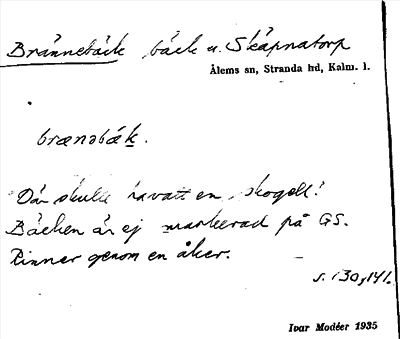 Brännebäck bäck u. Skäpnatorp
Ålems sn, Stranda hd, Kalm. l.
brænəbæk.
Där skulle havatt en skogseld!
Bäcken är ej markerad på GS.
Rinner genom en åker.
s. 130, 141.
Ivar Modéer 1935